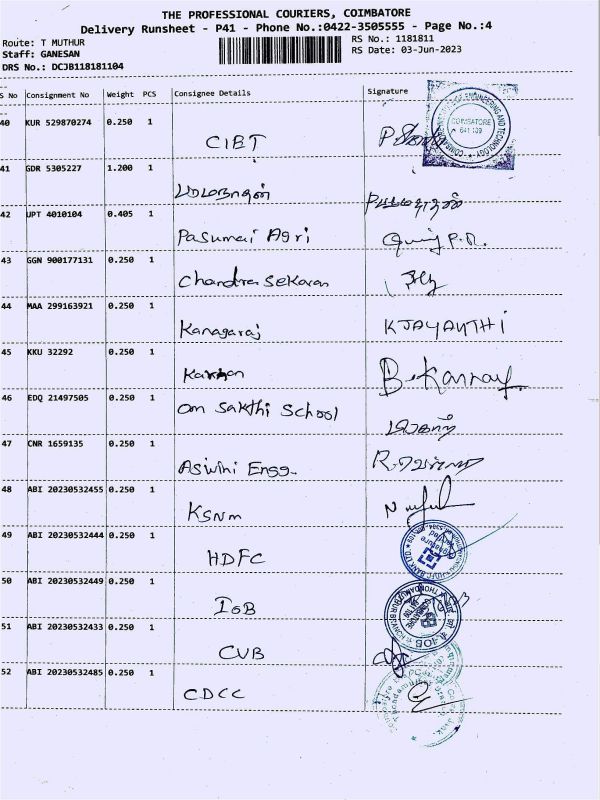 THE PROFESSIONAL COURIERS, COIMBATORE
Delivery Runsheet - P41 - Phone No.:0422-3505555 - Page No.:4
Route: T MUTHUR
RS No.: 1181811
Staff: GANESAN
RS Date: 03-Jun-2023
DRS No.: DCJB118181104
S No Consignment No Weight PCS Consignee Details Signature
40 KUR 529870274 0.250 1
COIMBATORE
641 109
41 GDR 5305227 1.200 1
42 UPT 4010104 0.405 1
Pasumai Agri
P.R.
43 GGN 900177131 0.250 1
Chandra Sekaran
44 MAA 299163921 0.250 1
Kanagaraj KJAYANTHI
45 KKU 32292 0.250 1
Kannan B. Kannan
46 EDQ 21497505 0.250 1
om Sakthi School
47 CNR 1659135 0.250 1
Aswini Engg
48 ABI 20230532455 0.250 1
KSNM
49 ABI 20230532444 0.250 1
HDFC
50 ABI 20230532449 0.250 1
IOB
51 ABI 20230532433 0.250 1
CUB
52 ABI 20230532485 0.250 1
CDCC